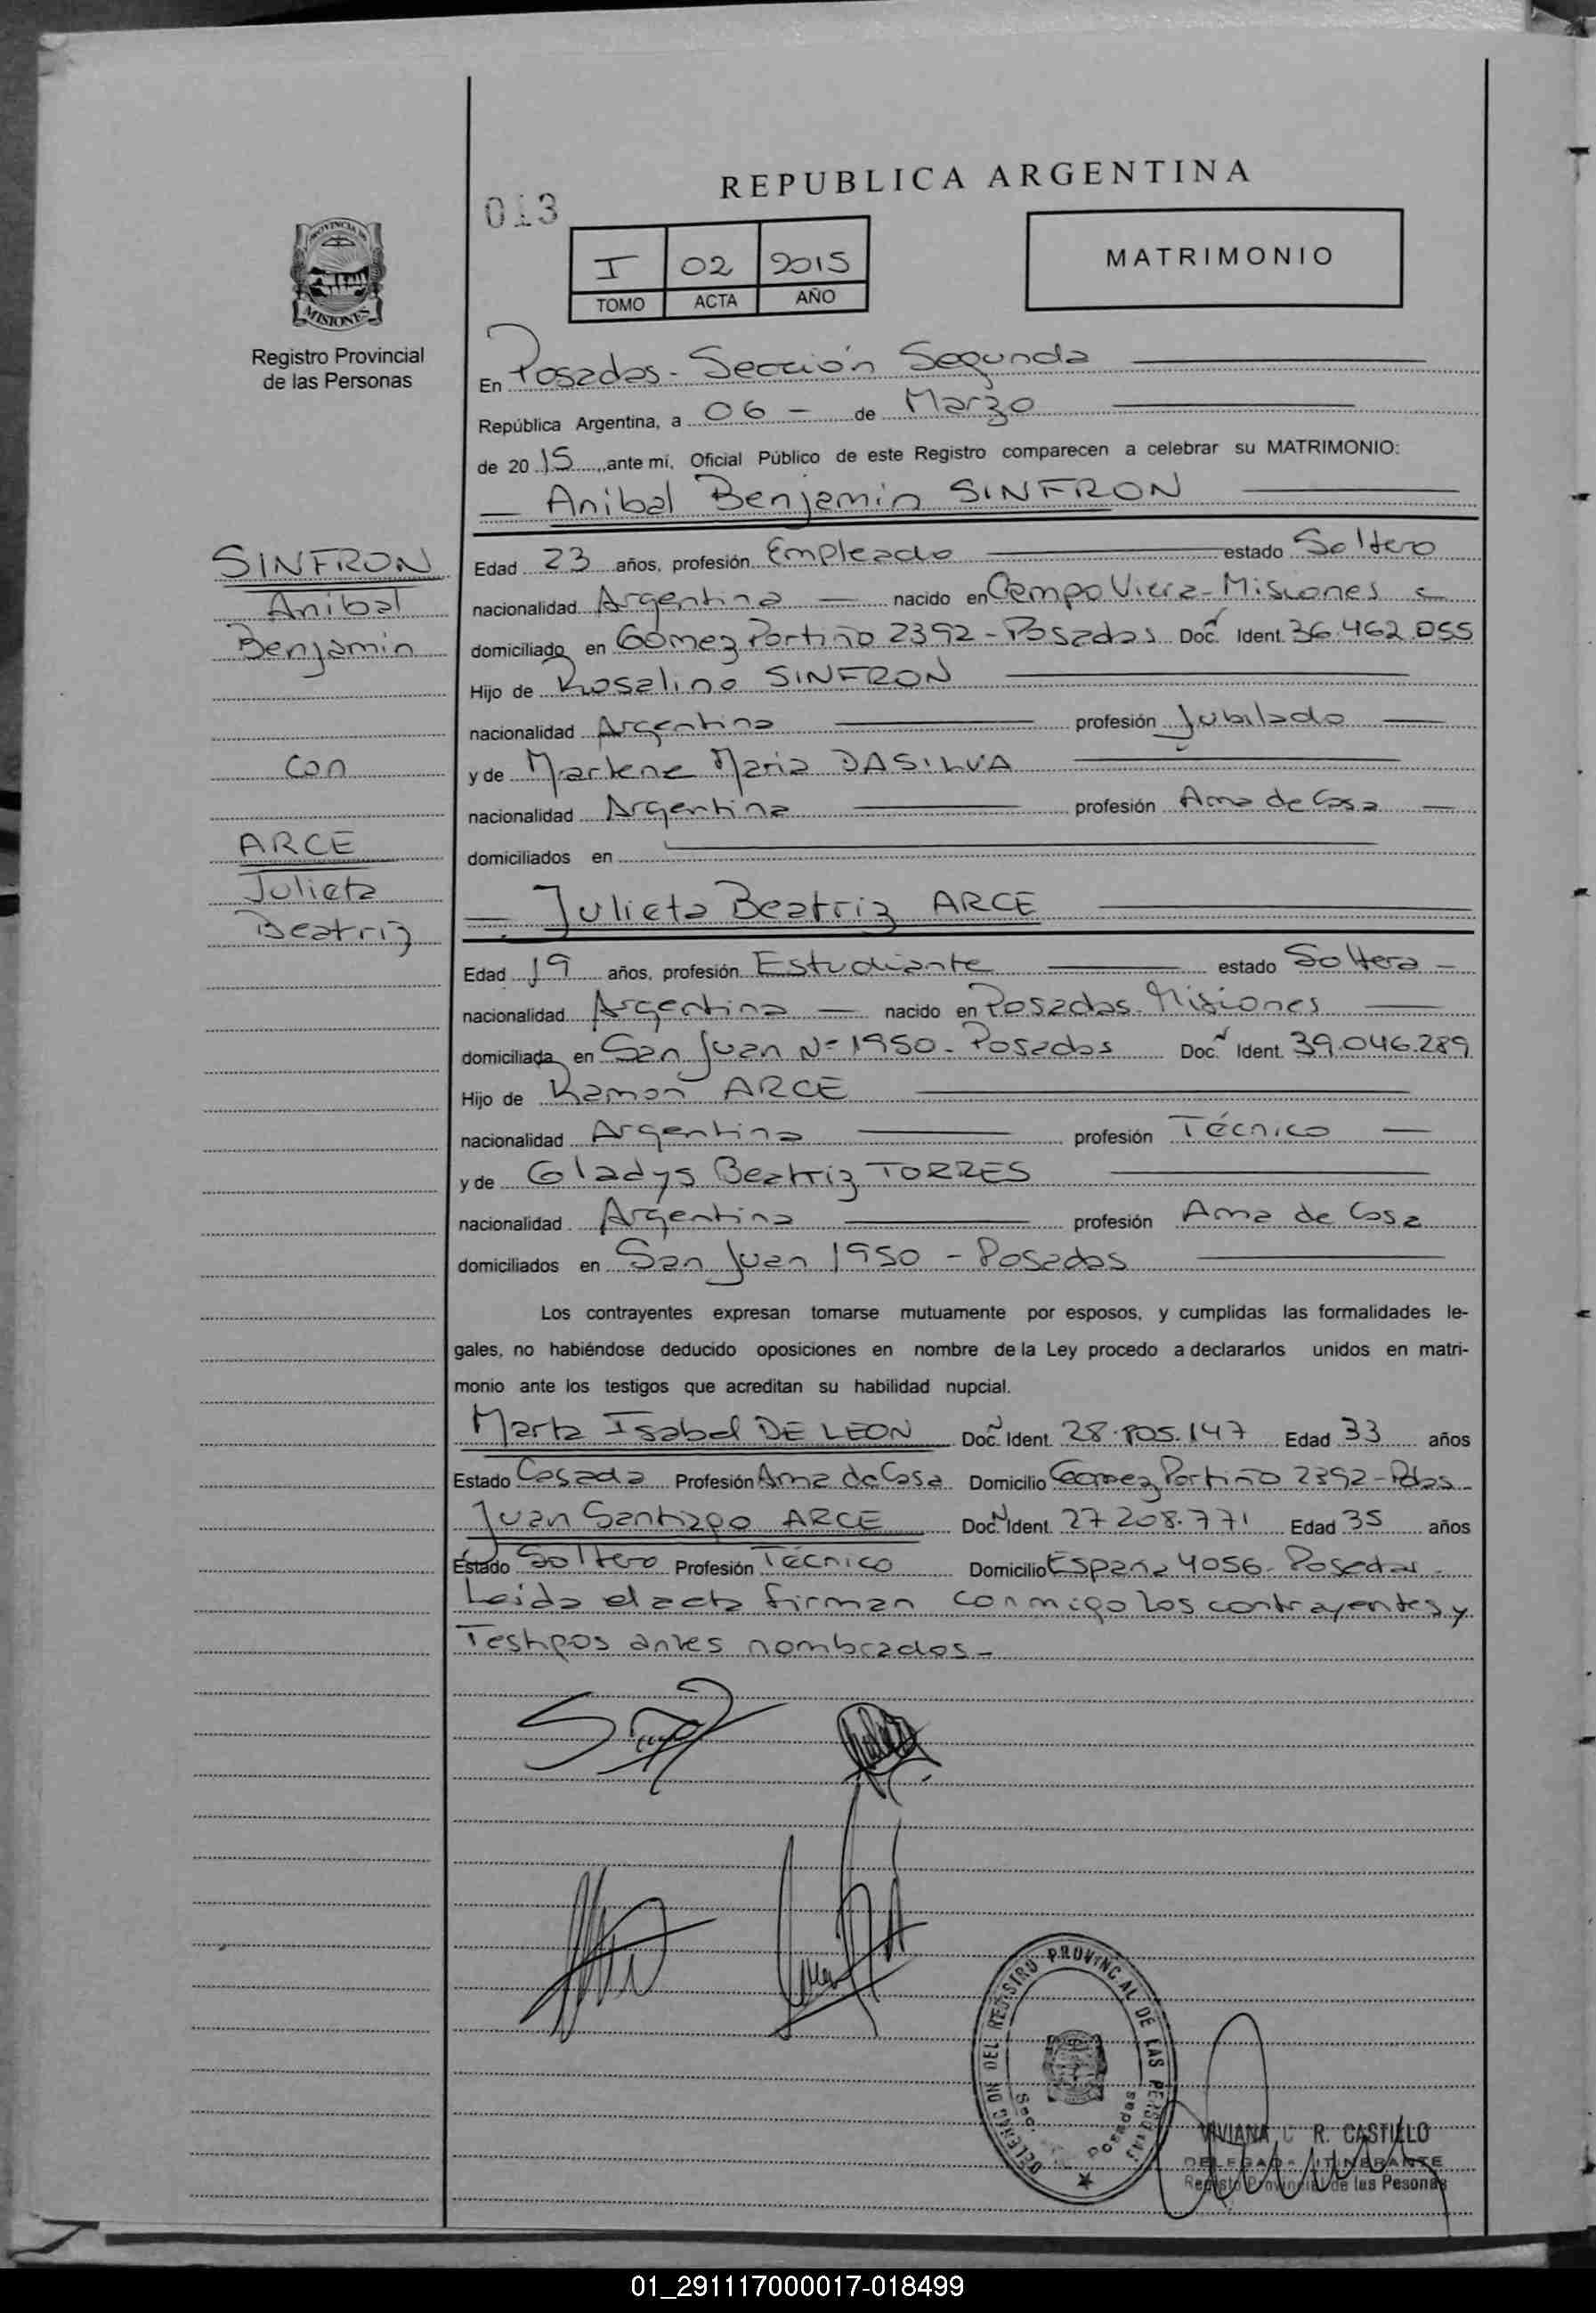 REPUBLICA ARGENTINA
013
I 02 2015
TOMO ACTA AÑO
MATRIMONIO
PROVINCIA DE
MISIONES
Registro Provincial
de las Personas
En Posadas - Sección Segunda
República Argentina, a 06 - de Marzo
de 2015, ante mí, Oficial Público de este Registro comparecen a celebrar su MATRIMONIO:
Anibal Benjamin SINFRON
SINFRON
Anibal
Benjamin
con
ARCE
Julieta
Beatriz
Edad 23 años, profesión Empleado estado Soltero
nacionalidad Argentina nacido en Campo Viera - Misiones
domiciliado en Gómez Portiño 2392 - Posadas Doc. Ident. 36.462.055
Hijo de Rosalino SINFRON
nacionalidad Argentina profesión Jubilado
y de Marlene Maria DASILVA
nacionalidad Argentina profesión Ama de Casa
domiciliados en
Julieta Beatriz ARCE
Edad 19 años, profesión Estudiante estado Soltera -
nacionalidad Argentina nacido en Posadas - Misiones
domiciliada en San Juan Nº 1950 - Posadas Doc. Ident. 39.046.289
Hijo de Ramon ARCE
nacionalidad Argentina profesión Técnico
y de Gladys Beatriz TORRES
nacionalidad Argentina profesión Ama de Casa
domiciliados en San Juan 1950 - Posadas
Los contrayentes expresan tomarse mutuamente por esposos, y cumplidas las formalidades le-
gales, no habiéndose deducido oposiciones en nombre de la Ley procedo a declararlos unidos en matri-
monio ante los testigos que acreditan su habilidad nupcial.
Marta Isabel DE LEON Doc. Ident. 28.805.147 Edad 33 años
Estado Casada Profesión Ama de Casa Domicilio Gomez Portiño 2392 - Pdas -
Juan Santiago ARCE Doc. Ident. 27 208.771 Edad 35 años
Estado Soltero Profesión Técnico Domicilio España 4056 - Posadas -
Leida el acta firman conmigo los contrayentes y
Testigos antes nombrados -
DELEGACION DEL REGISTRO PROVINCIAL DE LAS PERSONAS
Sec. Posadas
VIVIANA R. CASTILLO
DELEGADA ITINERANTE
Registo Provincial de las Pesonas
01_291117000017-018499